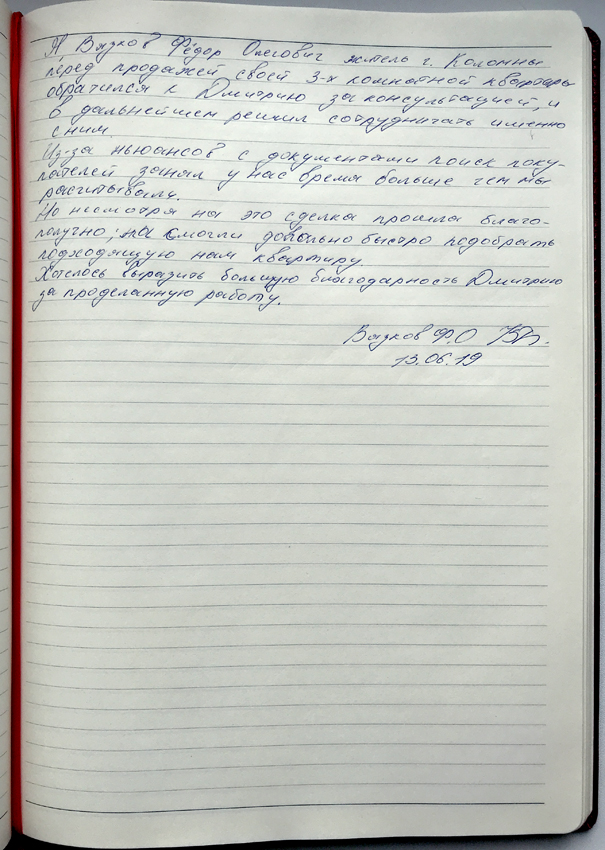 Я Вязков Фёдор Олегович житель г. Коломны
перед продажей своей 3-х комнатной квартиры
обратился к Дмитрию за консультацией, и
в дальнейшем решил сотрудничать именно
с ним.
Из-за ньюансов с документами поиск поку-
пателей занял у нас время больше чем мы
расчитывали.
Но несмотря на это сделка прошла благо-
получно, смогли довольно быстро подобрать
подходящую нам квартиру.
Хотелось выразить большую благодарность Дмитрию
за проделанную работу.
Вязков Ф.О
13.06.19